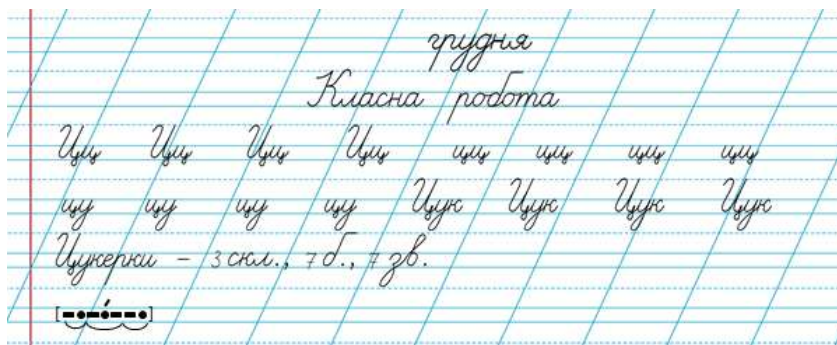 грудня
Класна робота
Цц Цц Цц Цц цц цц цц цц
цу цу цу цу Цук Цук Цук Цук
Цукерки – 3 скл., 7 б., 7 зв.
[–•–•́––•]